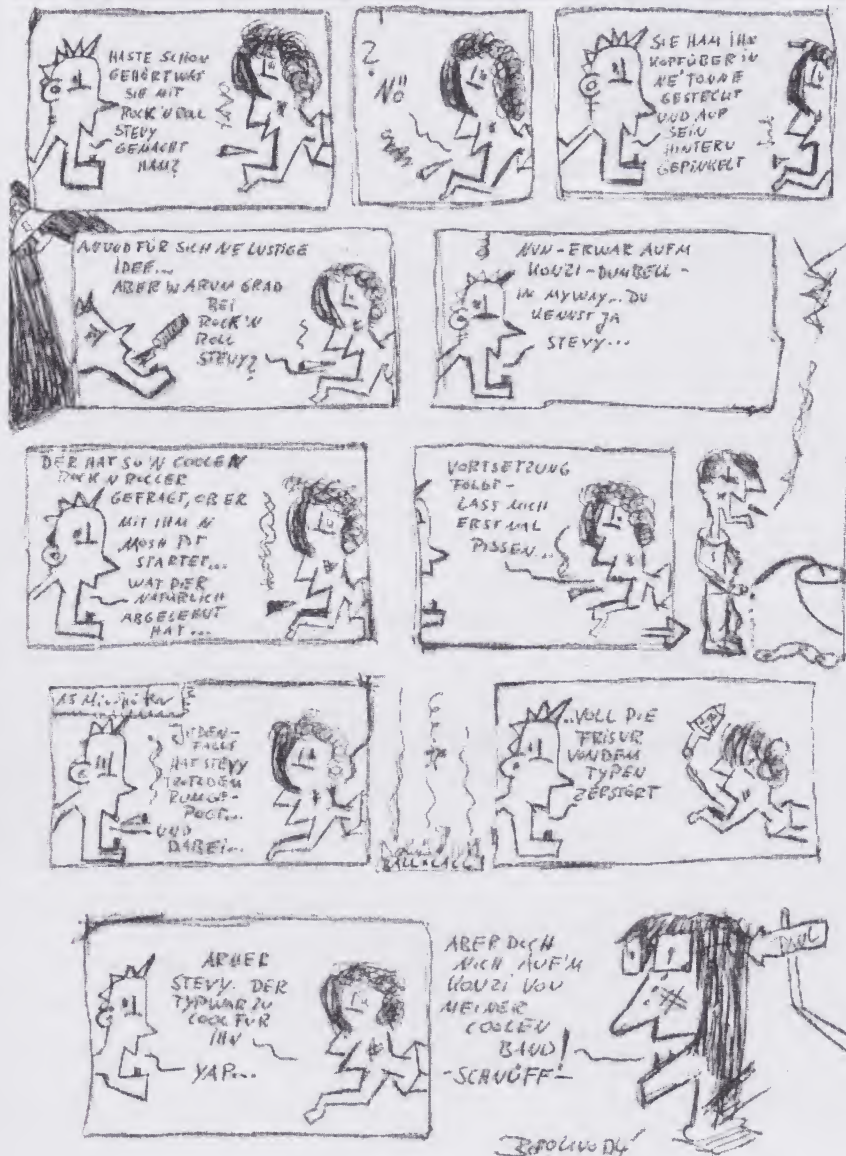 HASTE SCHON
GEHÖRT WAT
SIE MIT
ROCK'N ROLL
STEVY
GEMACHT
HAM?
?
NÖ
SIE HAM IHN
KOPFÜBER IN
NE' TONNE
GESTECKT
UND AUF
SEIN
HINTERN
GEPINKELT
FÜR SICH NE LUSTIGE
IDEE...
ABER WARUM GRAD
BEI
ROCK'N
ROLL
STEVY?
NUN - ER WAR AUFM
KONZI - DUMBELL -
IN MYWAY... DU
KENNST JA
STEVY...
DER HAT SO'N COOLEN
ROCK N ROLLER
GEFRAGT, OB ER
MIT IHM N
MOSH PIT
STARTET...
WAT DER
NATÜRLICH
ABGELEHNT
HAT...
VORTSETZUNG
FOLGT -
LASS MICH
ERST MAL
PISSEN...
15 Min später
JEDEN-
FALLS
HAT STEVY
TROTZDEM
RUMGE-
POGT...
UND
DABEI...
LALL LALL
...VOLL DIE
FRISUR
VON DEM
TYPEN
ZERSTÖRT
ARMER
STEVY. DER
TYP WAR ZU
COOL FÜR
IHN
YAP...
ABER DOCH
NICH AUF'M
KONZI VON
MEINER
COOLEN
BAND!
-SCHNÜFF!-
PAUL